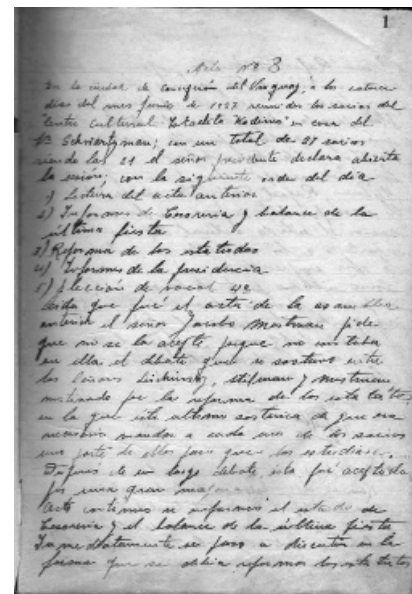 1
Acta No 3
En la ciudad de Concepción del Uruguay, a los catorce
dias del mes Junio de 1937 reunidos los socios del
"Centro Cultural Israelita Kadima" en casa del
Sr Schvartzman; con un total de 27 socios
siendo las 21 el señor presidente declara abierta
la sesión; con la siguiente orden del dia
1) Lectura del acta anterior
2) Informes de Tesoreria y balance de la
última fiesta
3) Reforma de los estatudos
4) Informes de la presidencia
5) Elección de vocal 4º
Leida que fué el acta de la asamblea
anterior el señor Jacobo Mostman pide
que no se la acepte porque no
en ella el debate que se sostuvo entre
los Señores stilman y Mostman
motivado por la reforma de los estatutos
en la que este ultimo sostenia de que era
necesario mandar a cada uno de los socios
una parte de ellos para que los estudiase.
Después de un largo debate, esta fué aceptada
por una gran mayoria
Acto continuo se informó el estado de
Tesoreria y el balance de la última fiesta
Inmediatamente se paso a discutir en la
forma que se debia reformar los estatutos